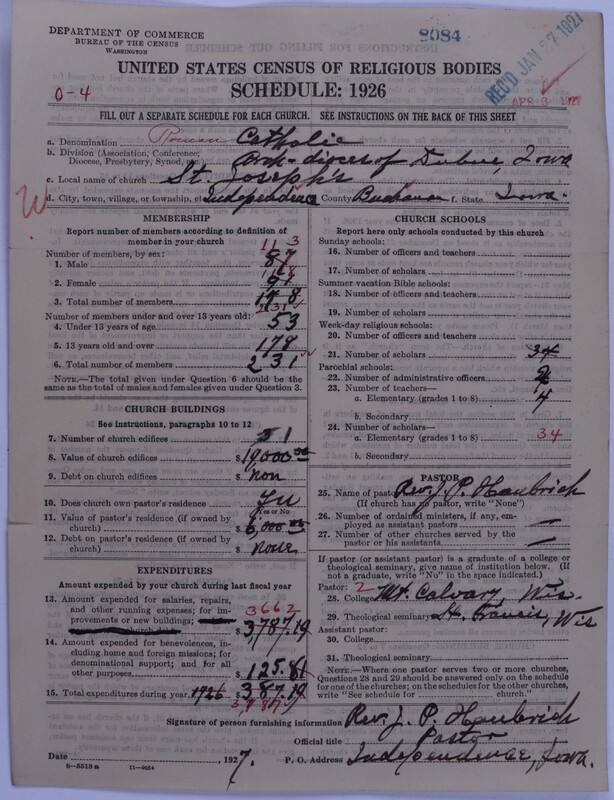 DEPARTMENT OF COMMERCE
BUREAU OF THE CENSUS
WASHINGTON
9084
REC'D JAN 27 1927
APR 8 1927
UNITED STATES CENSUS OF RELIGIOUS BODIES
SCHEDULE: 1926
0-4
FILL OUT A SEPARATE SCHEDULE FOR EACH CHURCH. SEE INSTRUCTIONS ON THE BACK OF THIS SHEET
a. Denomination Roman Catholic
b. Division (Association, Conference, Diocese, Presbytery, Synod, etc.) Iowa
c. Local name of church St. Joseph's
d. City, town, village, or township, Independence County Buchanan f. State Iowa.
MEMBERSHIP
Report number of members according to definition of
member in your church
Number of members, by sex:
113
1. Male 87
118
2. Female 91
3. Total number of members 178
231
Number of members under and over 13 years old:
4. Under 13 years of age 53
5. 13 years old and over 178
6. Total number of members 231
NOTE.—The total given under Question 6 should be the
same as the total of males and females given under Question 3.
CHURCH BUILDINGS
See instructions, paragraphs 10 to 12
7. Number of church edifices 1
8. Value of church edifices $ 19,000 00
9. Debt on church edifices $ non
10. Does church own pastor's residence
Yes or No
11. Value of pastor's residence (if owned by
church) $ 6,000 00
12. Debt on pastor's residence (if owned by
church) $ none
EXPENDITURES
Amount expended by your church during last fiscal year
13. Amount expended for salaries, repairs,
and other running expenses; for im-
provements or new buildings;
3662
$ 3787.19
14. Amount expended for benevolences,
including home and foreign missions; for
denominational support; and for all
other purposes $ 125.81
15. Total expenditures during year 1926 $
3787.19
CHURCH SCHOOLS
Report here only schools conducted by this church
Sunday schools:
16. Number of officers and teachers
17. Number of scholars
Summer vacation Bible schools:
18. Number of officers and teachers
19. Number of scholars
Week-day religious schools:
20. Number of officers and teachers
21. Number of scholars 34
Parochial schools:
22. Number of administrative officers
23. Number of teachers—
a. Elementary (grades 1 to 8) 4
b. Secondary
24. Number of scholars—
a. Elementary (grades 1 to 8) 34
b. Secondary
PASTOR
25. Name of pastor Rev. J. P. Haubrich
(If church has no pastor, write "None")
26. Number of ordained ministers, if any, em-
ployed as assistant pastors —
27. Number of other churches served by the
pastor or his assistants —
If pastor (or assistant pastor) is a graduate of a college or
theological seminary, give name of institution below. (If
not a graduate, write "No" in the space indicated.)
Pastor: 2
28. College Mt. Calvary, Wis.
29. Theological seminary St. Francis, Wis
Assistant pastor:
30. College
31. Theological seminary
NOTE.—Where one pastor serves two or more churches,
Questions 28 and 29 should be answered only on the schedule
for one of the churches; on the schedules for the other churches,
write "See schedule for church."
Signature of person furnishing information Rev. J. P. Haubrich
Official title Pastor
Date , 1927. P. O. Address Independence, Iowa.
8-5518a 11-9084